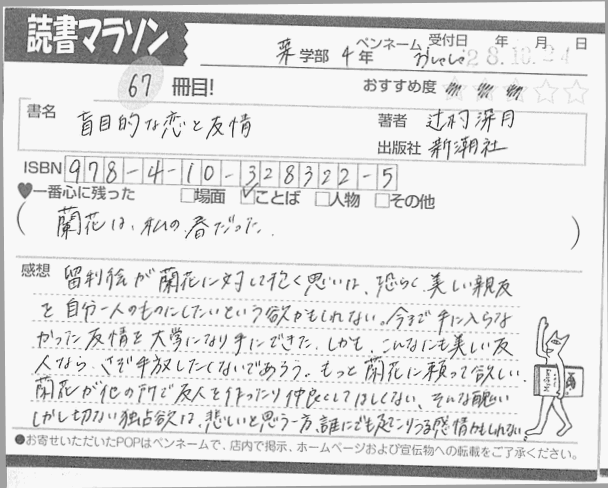 読書マラソン
薬学部 4年 ペンネーム おしゃしゃ 受付日 年 月 日
28.10.24
67 冊目!
おすすめ度 ☆☆☆☆☆
書名 盲目的な恋と友情
著者 辻村深月
出版社 新潮社
ISBN 978-4-10-328322-5
♥一番心に残った □場面 ☑ことば □人物 □その他
(蘭花は、私の春だった。)
感想 留利絵が蘭花に対して抱く思いは、恐らく美しい親友
を自分一人のものにしたいという欲かもしれない。今まで手に入らな
かった友情を大学になり手にできた。しかも、こんなにも美しい友
人なら、さぞ手放したくないであろう。もっと蘭花に頼って欲しい、
蘭花が他の所で友人を作ったり仲良くしてほしくない、そんな醜い
しかし切ない独占欲は、悲しいと思う一方、誰にでも起こりうる感情かもしれない。
●お寄せいただいたPOPはペンネームで、店内で掲示、ホームページおよび宣伝物への転載をご了承ください。